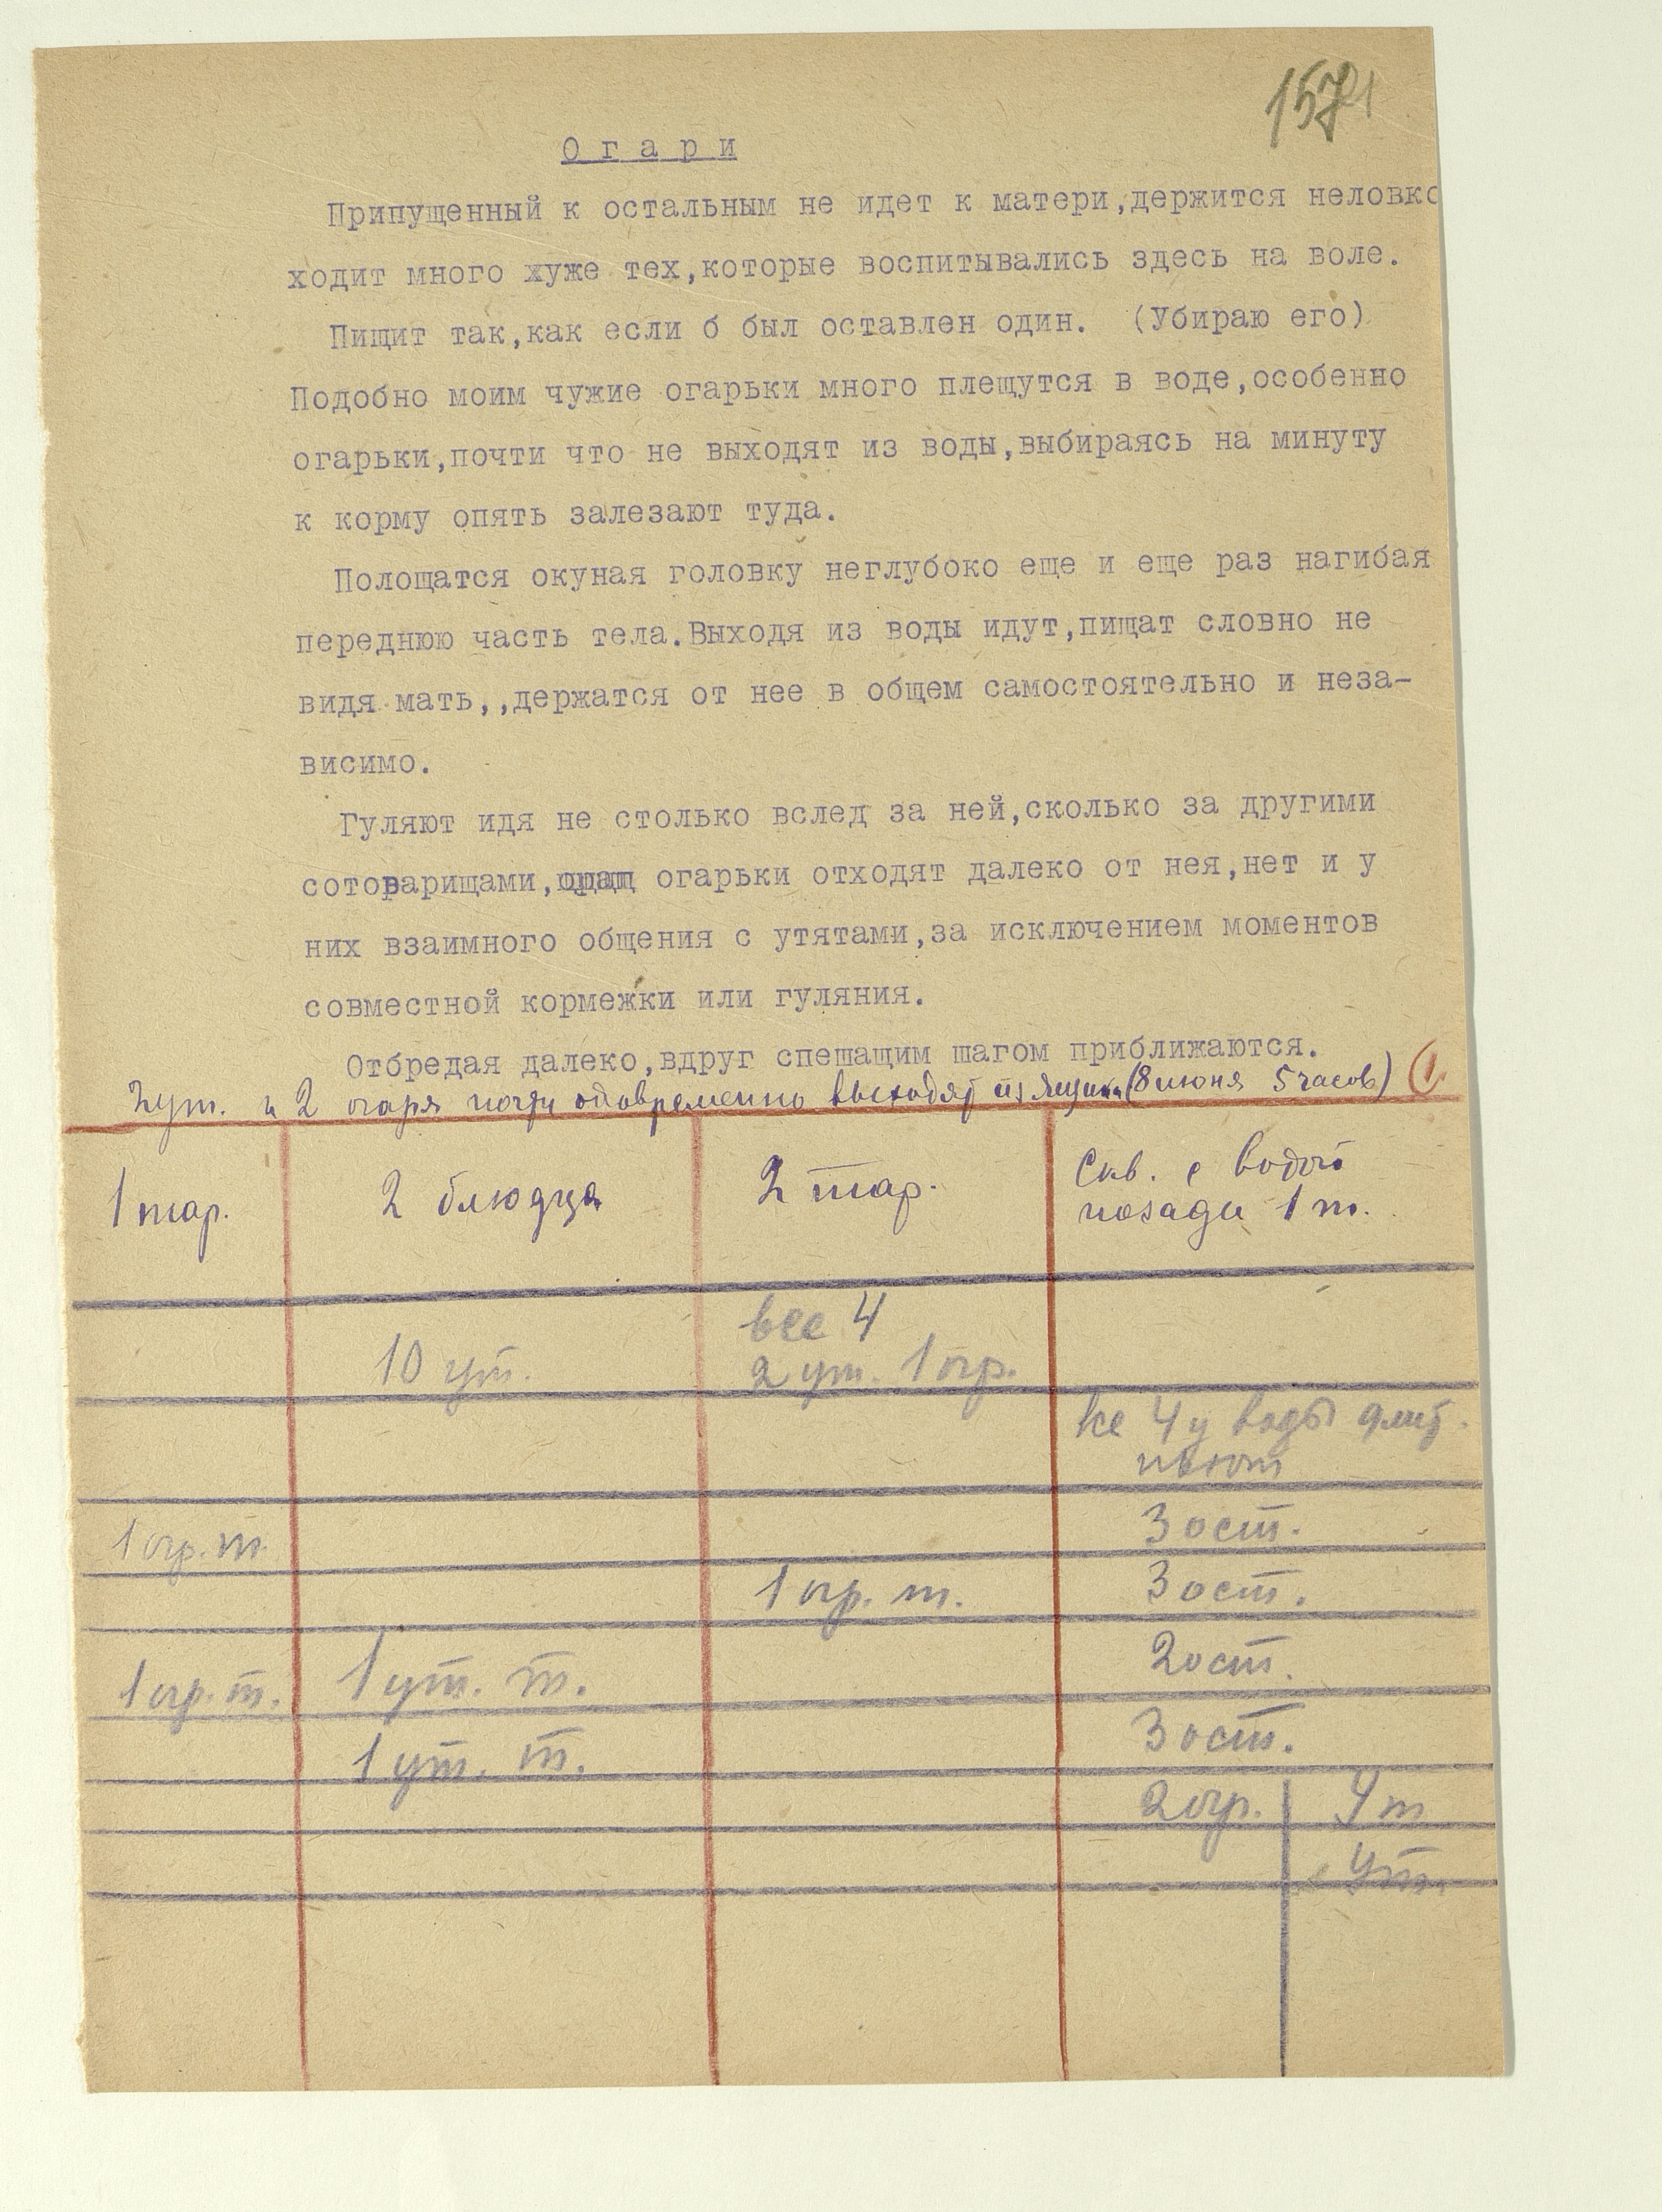 157
О г а р и
Припущенный к остальным не идет к матери,держится неловко
ходит много хуже тех,которые воспитывались здесь на воле.
Пищит так,как если б был оставлен один. (Убираю его)
Подобно моим чужие огарьки много плещутся в воде,особенно
огарьки,почти что не выходят из воды,выбираясь на минуту
к корму опять залезают туда.
Полощатся окуная головку неглубоко еще и еще раз нагибая
переднюю часть тела.Выходя из воды идут,пищат словно не
видя мать,,держатся от нее в общем самостоятельно и неза-
висимо.
Гуляют идя не столько вслед за ней,сколько за другими
сотоварищами, огарьки отходят далеко от нея,нет и у
них взаимного общения с утятами,за исключением моментов
совместной кормежки или гуляния.
Отбредая далеко,вдруг спешащим шагом приближаются.
2 ут. и 2 огаря почти одновременно выходят из ящика (8 июня 5 часов) 1.
1 тар. 2 блюдца 2 тар. Скв. с водой
позади 1 т.
все 4
10 ут. 2 ут. 1 огр.
все 4 у воды
пьют
1 огр. т. 3 ост.
1 огр. т. 3 ост.
1 огр. т. 1 ут. т. 2 ост.
1 ут. т. 3 ост.
2 огр. Ут
Ут.